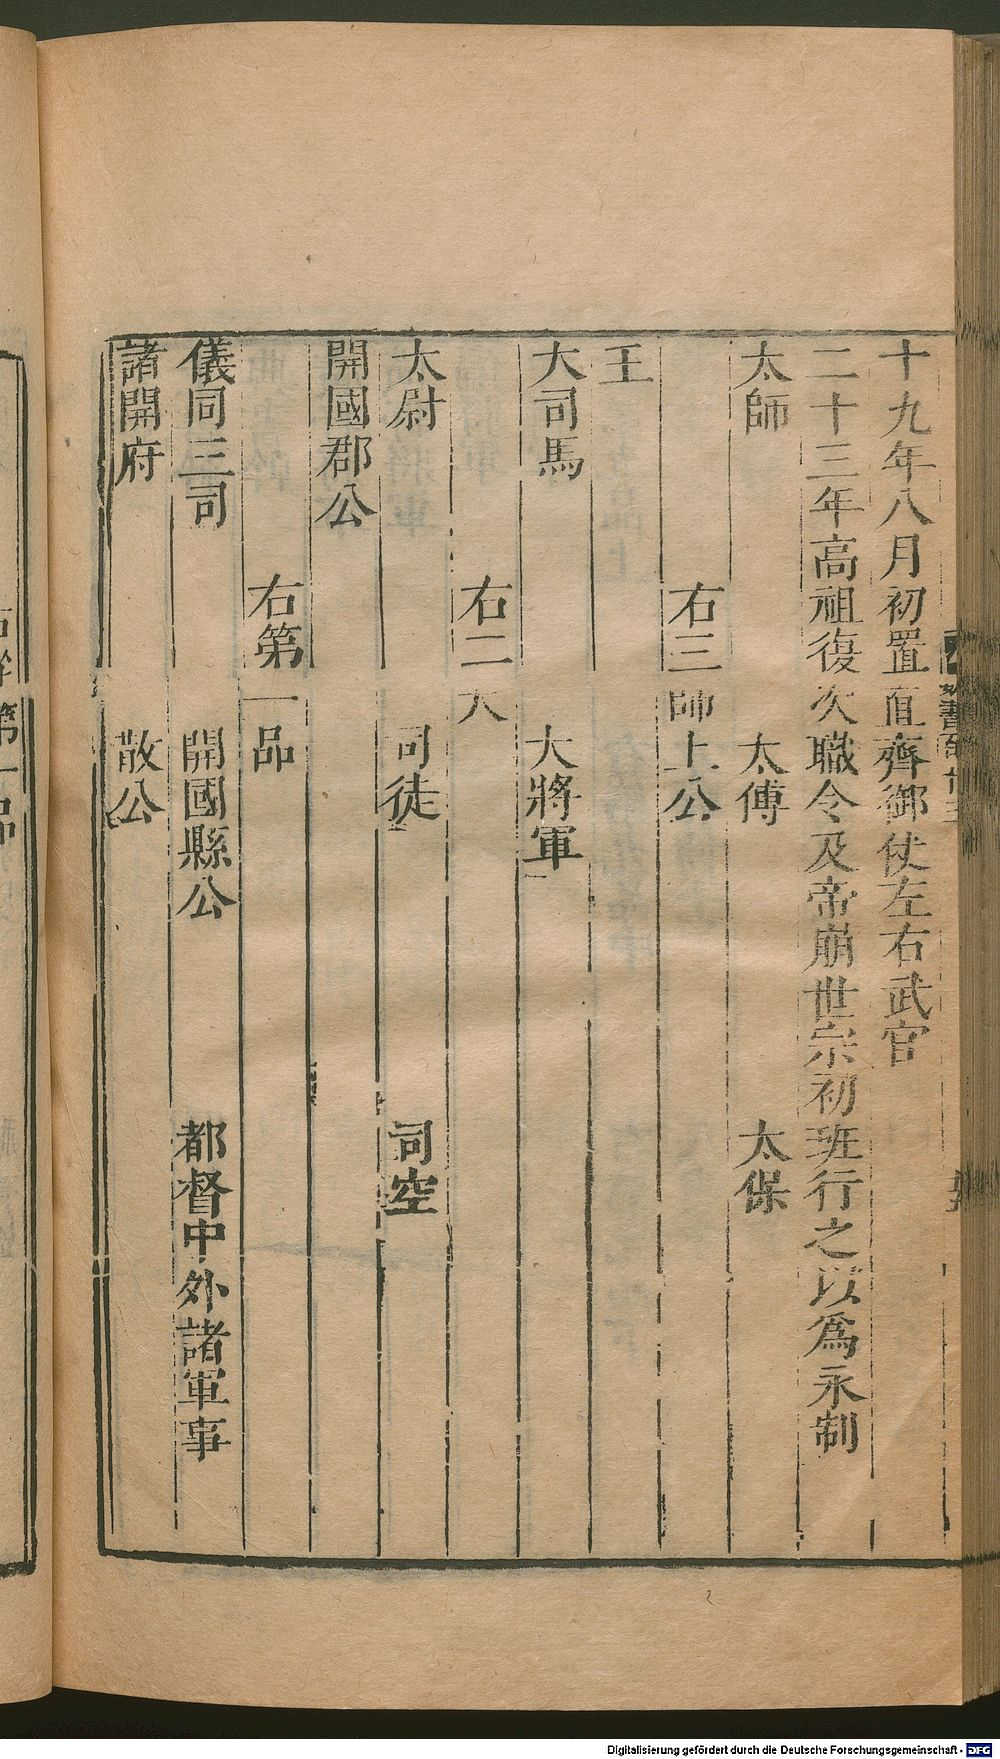 十九年八月初置直齊御仗左右武官
二十三年高祖復次職令及帝崩世宗初班行之以爲永制
太師 太傅 太保
右三師上公
王
大司馬 大將軍
右二大
太尉 司徒 司空
開國郡公
右第一品
儀同三司 開國縣公 都督中外諸軍事
諸開府 散公
第一品
Digitalisierung gefördert durch die Deutsche Forschungsgemeinschaft - DFG